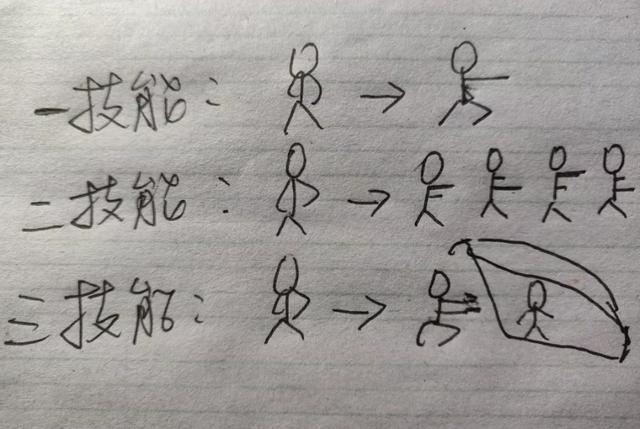 一技能：
二技能：
三技能：